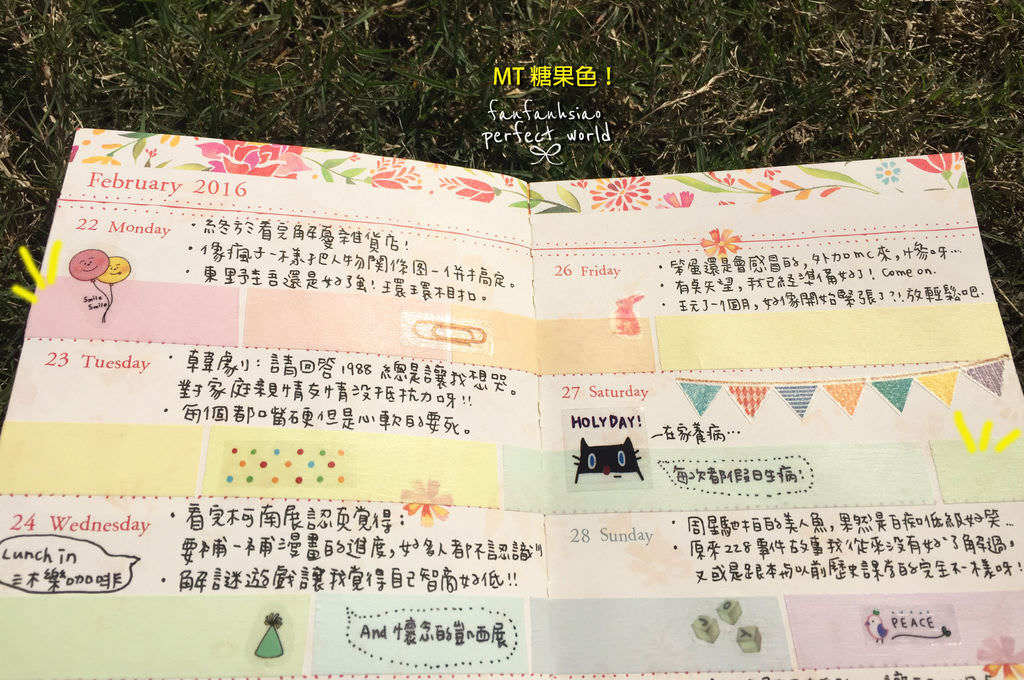 MT 糖果色！
fanfanhsiao
perfect world
February 2016
22 Monday
・終於看完解憂雜貨店！
・像瘋子一樣把人物關係圖一併搞定。
・東野圭吾還是好強！環環相扣。
Smile
Smile
23 Tuesday
・韓劇：請回答1988 總是讓我想哭。
對家庭親情友情沒抵抗力呀!!
・每個都嘴硬但是心軟的要死。
24 Wednesday
Lunch in
三木樂咖啡
・看完柯南展認真覺得：
要補一補漫畫的進度，好多人都不認識!!
・解謎遊戲讓我覺得自己智商好低!!
And 懷念的凱西展
26 Friday
・笨蛋還是會感冒的，外加mc來，慘呀…
・有臭失望，我已經準備好了！Come on.
・玩了一個月，好像開始緊張了?!放輕鬆吧.
27 Saturday
HOLYDAY!
－在家養病…
每次都假日生病！
28 Sunday
・周星馳拍的美人魚，果然是白痴低級好笑…
・原來228事件故事我從來沒有好好了解過，
又或是跟本與以前歷史課本的完全不一樣呀！
PEACE